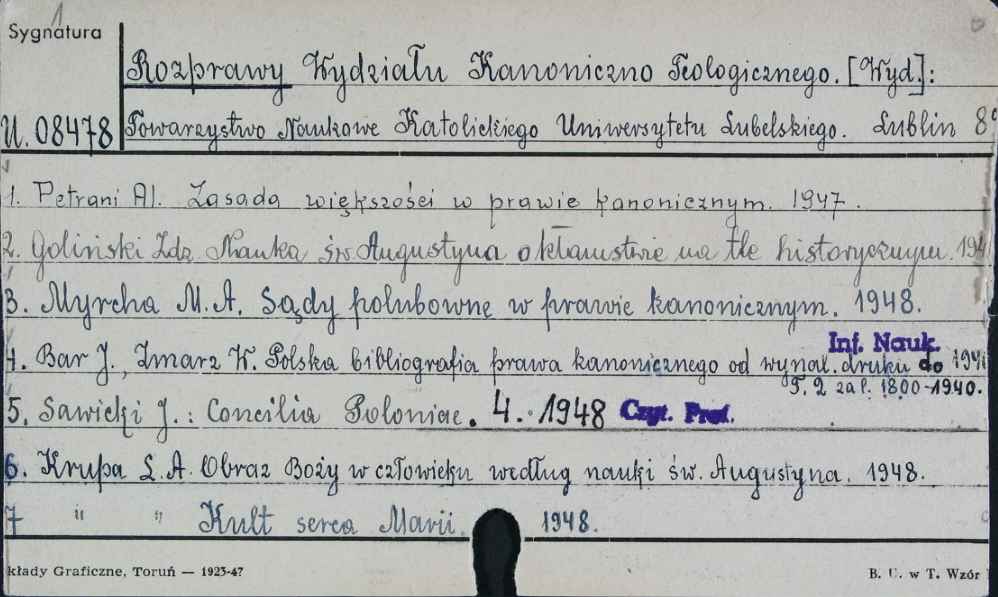 1
Sygnatura
Rozprawy Wydziału Kanoniczno Teologicznego. [Wyd.]:
U. 08478
Towarzystwo Naukowe Katolickiego Uniwersytetu Lubelskiego. Lublin 8°
1. Petrani Al. Zasada większości w prawie kanonicznym. 1947.
2. Goliński Zdz. Nauka św. Augustyna o kłamstwie na tle historycznym.
3. Myrcha M. A. Sądy polubowne w prawie kanonicznym. 1948.
Inf. Nauk.
4. Bar J., Zmarz W. Polska bibliografia prawa kanonicznego od wynal. druku do
T. 2 za l. 1800-1940.
5. Sawicki J.: Concilia Poloniae. 4. 1948 Czyt. Prof.
6. Krupa L. A. Obraz Boży w człowieku według nauki św. Augustyna. 1948.
7 " " Kult serca Marii. 1948.
kłady Graficzne, Toruń — 1923-47
B. U. w T. Wzór